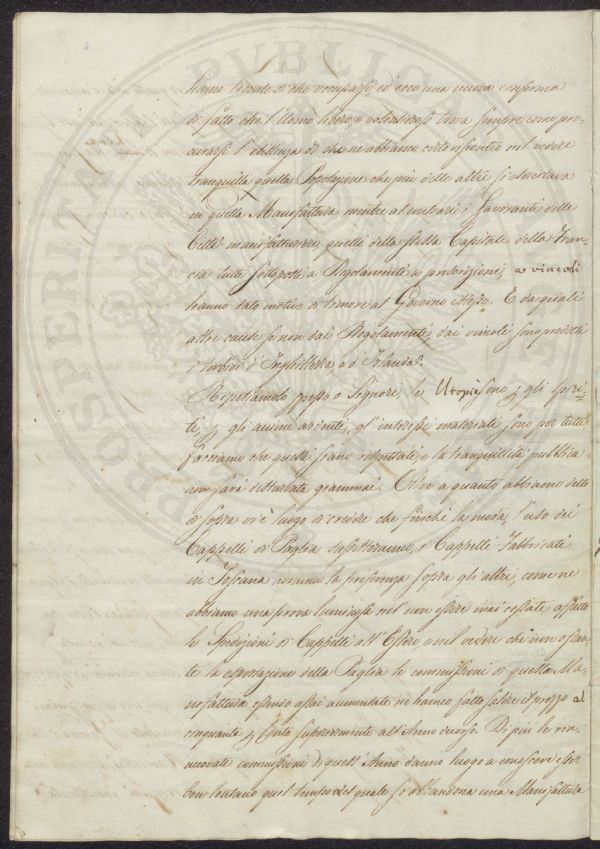 hanno trovato di che occuparsi, ed ecco una nuova conferma
di fatto che l'Uomo libero, e volonteroso trova sempre come pro-
curarsi l'esistenza di che ne abbiamo certo riscontro nel vedere
tranquilla quella Popolazione che più delle altre si esercitava
in questa Manifattura mentre al contrario i Lavoranti delle
Città manifatturiere, quelli della stessa Capitale della Fran-
cia tutti sottoposti a Regolamenti a prescrizioni, e vincoli
hanno dato motivo di timore al Governo istesso. E da quali
altre cause se non dai Regolamenti, dai vincoli sono prodotti
i torbidi d'Inghilterra, e d'Irlanda?
Ripetiamolo spesso o Signori, le Utopie sono p. gli spiri-
ti, p. gli animi ardenti, gl'interessi materiali sono per tutti
facciamo che questi siano rispettati e la tranquillità pubblica
non sarà disturbata giammai. Oltre a quanto abbiamo detto
di sopra vi è luogo di credere che finché la moda, l'uso dei
Cappelli di Paglia sussisteranno, i Cappelli Fabbricati
in Toscana avranno la preferenza sopra gli altri, come ne
abbiamo una prova luminosa nel non essere mai cessate affatto
le Spedizioni di Cappelli all'Estero, e nel vedere che non ostan-
te la esportazione della Paglia le commissioni di questa Ma-
nifattura essendo assai aumentate ne hanno fatto salire il prezzo al
cinquanta p. Cento superiormente all'Anno decorso. Di più le rin-
nuovate commissioni di quest'Anno danno luogo a conoscere esser
ben lontano quel tempo nel quale si abbandona una Manifattura
PROSPERITATI PUBLICAE